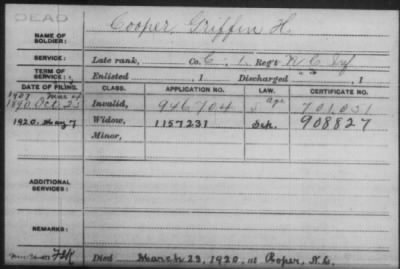 DEAD
NAME OF SOLDIER: Cooper, Griffin H.
SERVICE: Late rank, Co. C, 1, Reg't N.C. Inf
TERM OF SERVICE: Enlisted , 1 Discharged , 1
DATE OF FILING. CLASS. APPLICATION NO. LAW. CERTIFICATE NO.
1907
1890 Oct. 25 Invalid, 946704 Age 701,031
1920. May 7 Widow, 1157231 Sch. 908827
Minor,
ADDITIONAL SERVICES:
REMARKS:
Died March 23, 1920, at Roper, N.C.